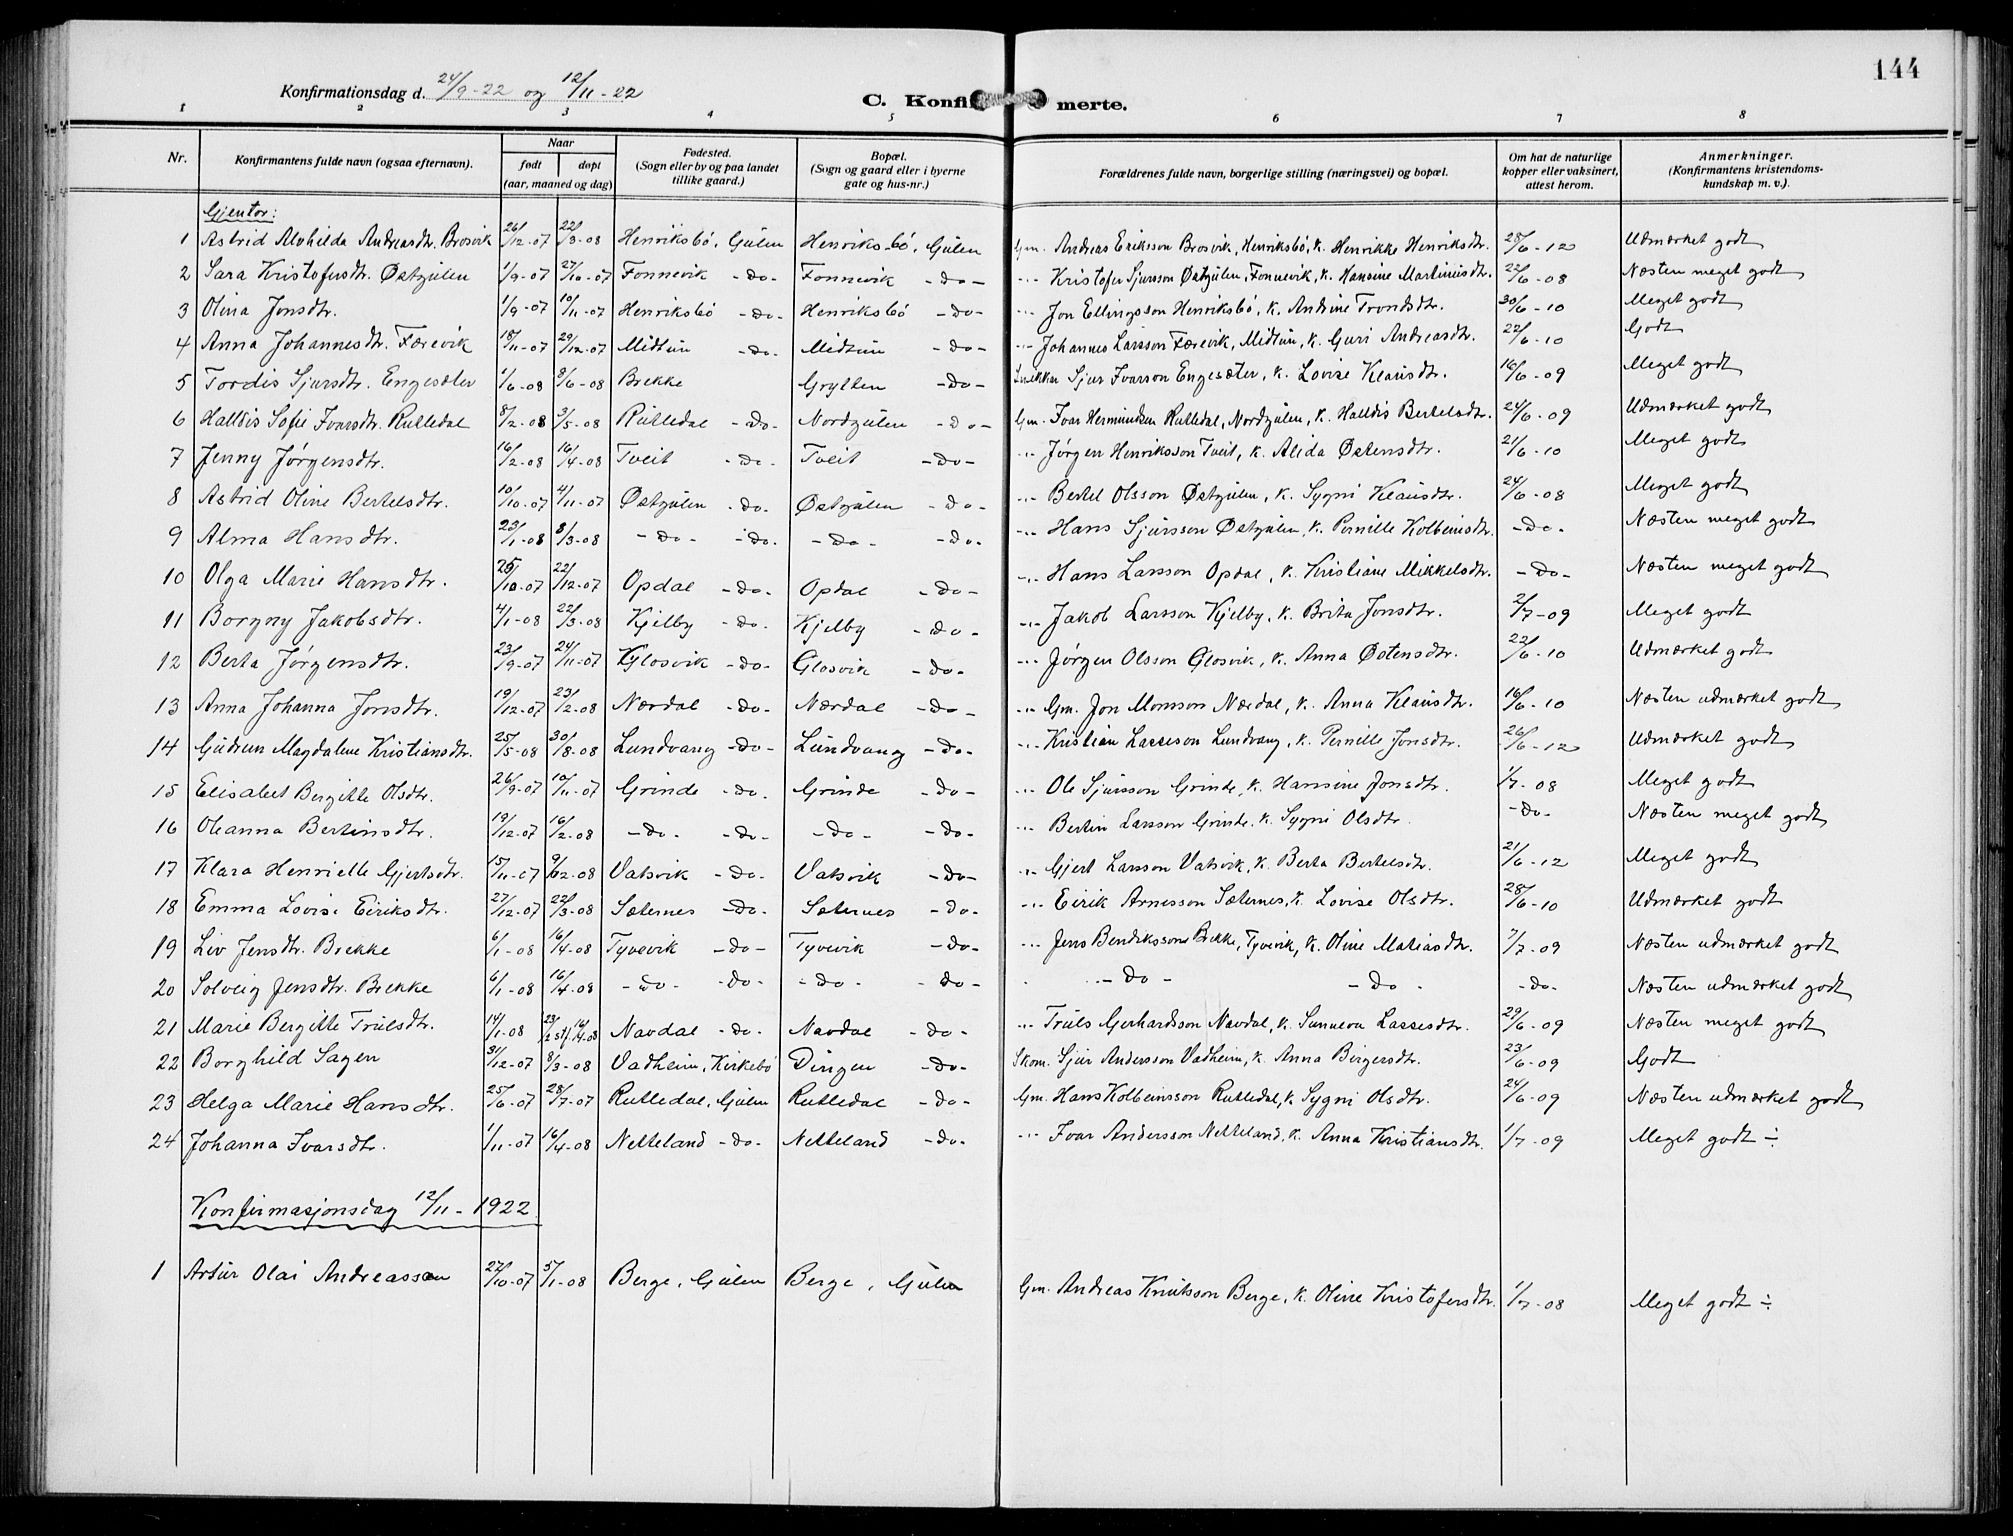 144
Konfirmationsdag d. 24/9-22 og 12/11-22
C. Konfi merte.
1 2 3 4 5 6 7 8
Nr. Konfirmantens fulde navn (ogsaa efternavn). Naar født døpt (aar, maaned og dag) Fødested. (Sogn eller by og paa landet tillike gaard.) Bopæl. (Sogn og gaard eller i byerne gate og hus-nr.) Forældrenes fulde navn, borgerlige stilling (næringsvei) og bopæl. Om hat de naturlige kopper eller vaksinert, attest herom. Anmerkninger. (Konfirmantens kristendoms-kundskap m. v.).
Gjentor:
1 Astrid Alvhilda Andreasdtr. Brosvik 26/12-07 22/3-08 Henriksbö, Gülen Henriksbö, Gülen Gm. Andreas Eriksson Brosvik, Henriksbö, k. Henrikke Henriksdtr. 28/6-12 Udmærket godt
2 Sara Kristofersdtr. Østgülen 1/9-07 27/10-07 Fonnevik -do- Fonnevik -do- -"- Kristofer Sjursson Østgülen, Fonnevik, k. Hansine Martinusdtr. 22/6-08 Næsten meget godt
3 Olina Jonsdtr. 1/9-07 10/11-07 Henriksbö -do- Henriksbö -do- -"- Jon Ellingsson Henriksbö, k. Andrine Trondsdtr. 30/6-10 Meget godt
4 Anna Johannesdtr. Færevik 18/11-07 29/12-07 Midtün -do- Midtün -do- -"- Johannes Larsson Færevik, Midtün, k. Guri Andreasdtr. 22/6-10 Godt
5 Tordis Sjursdtr. Engesæter 1/6-08 8/6-08 Brekke Grytten -do- Snekker Sjur Ivarson Engesæter, k. Lovise Klausdtr. 16/6-09 Meget godt
6 Halldis Sofie Ivarsdtr. Rutledal 8/2-08 3/5-08 Rütledal -do- Nordgülen -do- Gm. Ivar Hermundsen Rutledal, Nordgülen, k. Halldis Bertelsdtr. 24/6-09 Udmærket godt
7 Jenny Jørgensdtr. 16/2-08 16/4-08 Tveit -do- Tveit -do- -"- Jørgen Henriksson Tveit, k. Alida Østensdtr. 21/6-10 Meget godt
8 Astrid Oline Bertelsdtr. 10/10-07 4/11-07 Østgülen -do- Østgülen -do- -"- Bertel Olsson Østgülen, k. Sygni Klausdtr. 24/6-08 Meget godt
9 Alma Hansdtr. 23/1-08 8/3-08 -do- -do- -do- -do- -"- Hans Sjursson Østgülen, k. Pernille Kolbeinsdtr. -do- Næsten meget godt
10 Olga Marie Hansdtr. 25/10-07 22/12-07 Opdal -do- Opdal -do- -"- Hans Larsson Opdal, k. Kristiane Mikkelsdtr. -do- Næsten meget godt
11 Borgny Jakobsdtr. 4/1-08 22/3-08 Kjelby -do- Kjelby -do- -"- Jakob Larsson Kjelby, k. Brita Jonsdtr. 2/7-09 Meget godt
12 Berta Jørgensdtr. 23/9-07 24/11-07 Glosvik -do- Glosvik -do- -"- Jørgen Olsson Glosvik, k. Anna Østensdtr. 22/6-10 Udmærket godt
13 Anna Johanna Jonsdtr. 19/12-07 23/2-08 Nærdal -do- Nærdal -do- -"- Gm. Jon Monsson Nærdal, k. Anna Klausdtr. 16/6-10 Næsten udmærket godt
14 Güdrun Magdalene Kristiansdtr. 25/5-08 30/8-08 Lundvang -do- Lündvang -do- -"- Kristian Lasseson Lundvang, k. Pernille Jonsdtr. 26/6-12 Udmærket godt
15 Elisabet Bergitte Olsdtr. 26/9-07 10/11-07 Grinde -do- Grinde -do- -"- Ole Sjursson Grinde, k. Hansine Jonsdtr. 1/7-08 Meget godt
16 Oleanna Bertinsdtr. 19/12-07 16/2-08 -do- -do- -do- -do- -"- Bertin Larsson Grinde, k. Sygni Olsdtr. -do- Næsten meget godt
17 Klara Henrielle Gjertsdtr. 15/11-07 9/02-08 Vatsvik -do- Vatsvik -do- -"- Gjert Larsson Vatsvik, k. Berta Bertelsdtr. 21/6-12 Meget godt
18 Emma Lovise Eiriksdtr. 27/12-07 22/3-08 Sæternes -do- Sæternes -do- -"- Eirik Arnesson Sæternes, k. Lovise Olsdtr. 28/6-10 Udmærket godt
19 Liv Jensdtr. Brekke 6/1-08 16/4-08 Tyvevik -do- Tyvevik -do- -"- Jens Bendiksson Brekke, Tyvevik, k. Oline Matiasdtr. 7/7-09 Næsten udmærket godt
20 Solveig Jensdtr. Brekke 6/1-08 16/4-08 -do- -do- -do- -do- -do- -do- -do- Næsten udmærket godt
21 Marie Bergitte Trülsdtr. 14/1-08 23/2 st. 16/4-08 Navdal -do- Navdal -do- -"- Trüls Gerhardsson Navdal, k. Sunneva Lassesdtr. 29/6-09 Næsten meget godt
22 Borghild Sagen 31/12-07 8/3-08 Vadheim, Kirkebö Dingen -do- Skom. Sjur Andersson Vadheim, k. Anna Birgersdtr. 23/6-09 Godt
23 Helga Marie Hansdtr. 25/6-07 28/7-07 Rutledal, Gülen Rutledal -do- Gm. Hans Kolbeinsson Rutledal, k. Sygni Olsdtr. 24/6-09 Næsten udmærket godt
24 Johanna Ivarsdtr. 1/11-07 16/4-08 Netteland -do- Netteland -do- -"- Ivar Andersson Netteland, k. Anna Kristiansdtr. 1/7-09 Meget godt ÷
Konfirmasjonsdag 12/11-1922
1 Artür Olai Andreasson 27/10-07 5/1-08 Berge, Gülen Berge, Gülen Gm. Andreas Knütsson Berge, k. Oline Kristofersdtr. 1/7-08 Meget godt ÷